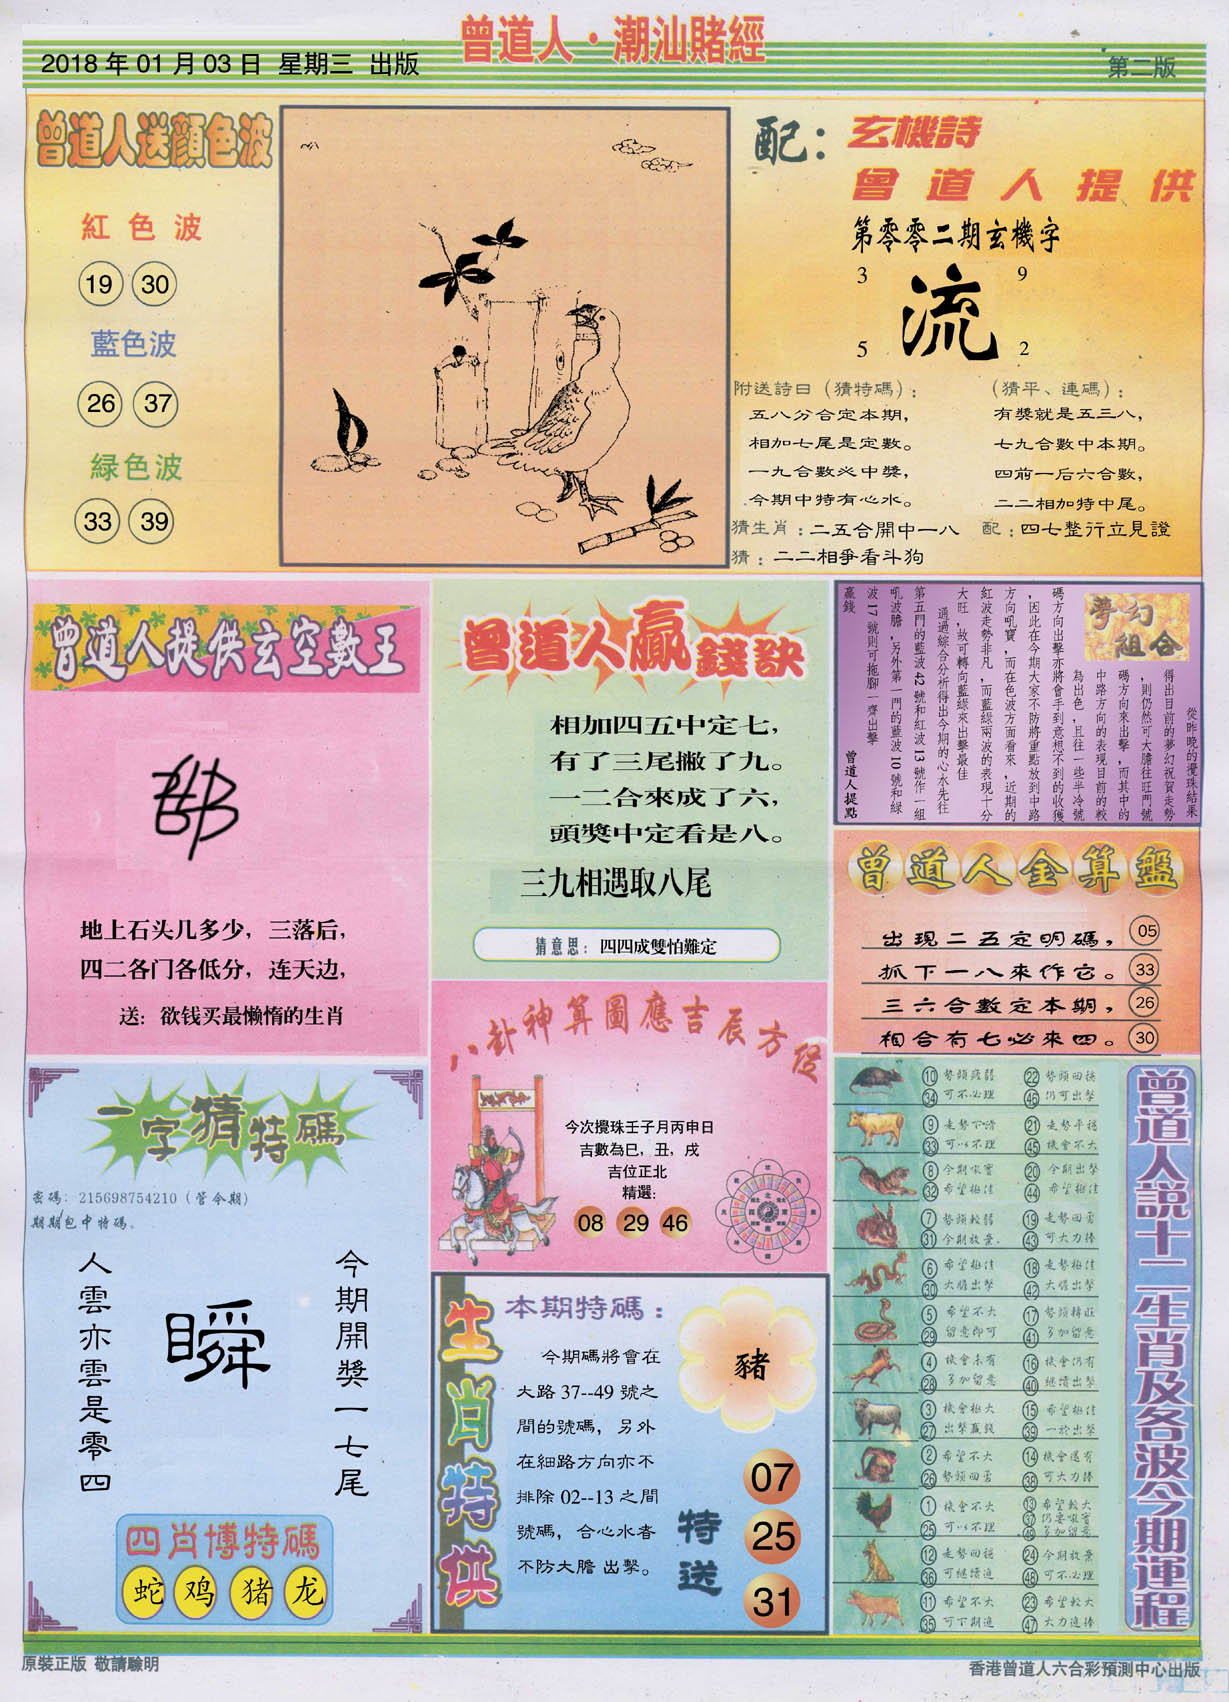 曾道人·潮汕賭經
2018 年 01 月 03 日 星期三 出版
第二版
曾道人送顏色波
紅色波
19 30
藍色波
26 37
緑色波
33 39
配：
玄機詩
曾道人提供
第零零二期玄機字
3 9
流
5 2
附送詩日（猜特碼）：
五八分合定本期，
相加七尾是定數。
一九合數必中獎，
今期中特有心水。
（猜平、連碼）：
有獎就是五三八，
七九合數中本期。
四前一后六合數，
二二相加特中尾。
猜生肖：二五合開中一八 配：四七整行立見證
猜：二二相爭看斗狗
曾道人提供玄空數王
地上石头几多少，三落后，
四二各门各低分，连天边，
送：欲钱买最懒惰的生肖
曾道人贏錢訣
相加四五中定七，
有了三尾撇了九。
一二合來成了六，
頭獎中定看是八。
三九相遇取八尾
猜意思：四四成雙怕難定
夢幻組合
從昨晚的攪珠結果
得出目前的夢幻祝賀走勢
，則仍然可大膽往旺門號
碼方向來出擊，而其中的
中路方向的表現目前的較
為出色，且往一些半冷號
碼方向出擊亦將會手到意想不到的收獲
，因此在今期大家不防將重點放到中路
方向吼寶，而在色波方面看來，近期的
紅波走勢非凡，而藍綠兩波的表現十分
大旺，故可轉向藍綠來出擊最佳
通過綜合分析得出今期的心水先往
第五門的藍波 42 號和紅波 13 號作一組
吼波膽，另外第一門的藍波 10 號和綠
波 17 號則可拖腳一齊出擊
贏錢 曾道人提點
曾道人金算盤
出現二五定明碼， 05
抓下一八來作它。 33
三六合數定本期， 26
相合有七必來四。 30
八卦神算圖應吉辰方位
今次攪珠壬子月丙申日
吉數為巳，丑，戌
吉位正北
精選：
08 29 46
一字猜特碼
密碼：215698754210（管今期）
期期包中特碼。
今期開獎一七尾
瞬
人雲亦雲是零四
四肖博特碼
蛇 鸡 猪 龙
生肖特供
本期特碼：
今期碼將會在
大路 37--49 號之
間的號碼，另外
在細路方向亦不
排除 02--13 之間
號碼，合心水者
不防大膽 出擊。
豬
特送
07
25
31
曾道人説十二生肖及各波今期運程
10 勢頭疲弱 22 勢頭回穩
34 可不必理 46 仍可出擊
9 走勢下滑 21 走勢平穩
33 可以不理 45 機會不大
8 今期吼寶 20 今期出擊
32 希望極佳 44 希望極佳
7 勢頭較弱 19 走勢回勇
31 今期放棄 43 可大力捧
6 希望極佳 18 走勢極佳
30 大膽出擊 42 大膽出擊
5 希望不大 17 勢頭轉旺
29 留意即可 41 多加留意
4 機會未有 16 機會仍有
28 多加留意 40 繼續出擊
3 機會極大 15 希望極佳
27 出擊贏錢 39 一於出擊
2 希望不大 14 機會還有
26 勢頭回勇 38 可大力捧
1 機會不大 13 希望較大
25 可以不理 37 仍要吼寶
49 多加留意
12 走勢回穩 24 今期放棄
36 可繼續追 48 可不必理
11 希望不大 23 希望較大
35 可下期追 47 大力進捧
原裝正版 敬請驗明
香港曾道人六合彩預測中心出版